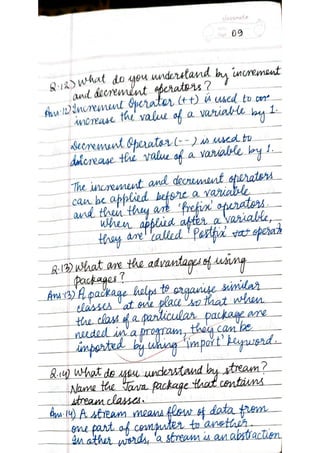 classmate
09
Q.12) What do you understand by increment
and decrement operators?
Ans:12) Increment Operator (++) is used to
increase the value of a variable by 1.
Decrement Operator (--) is used to
decrease the value of a variable by 1.
The increment and decrement operators
can be applied before a variable
and then they are 'Prefix' operators.
When applied after a variable,
they are called 'Postfix' operat
Q.13) What are the advantages of using
packages?
Ans:13) A package helps to organise similar
classes at one place so that when
the class of a particular package are
needed in a program, they can be
imported by using 'import' keyword.
Q.14) What do you understand by stream?
Name the Java package that contains
stream classes.
Ans:14) A stream means flow of data from
one part of computer to another.
In other words, a stream is an abstraction